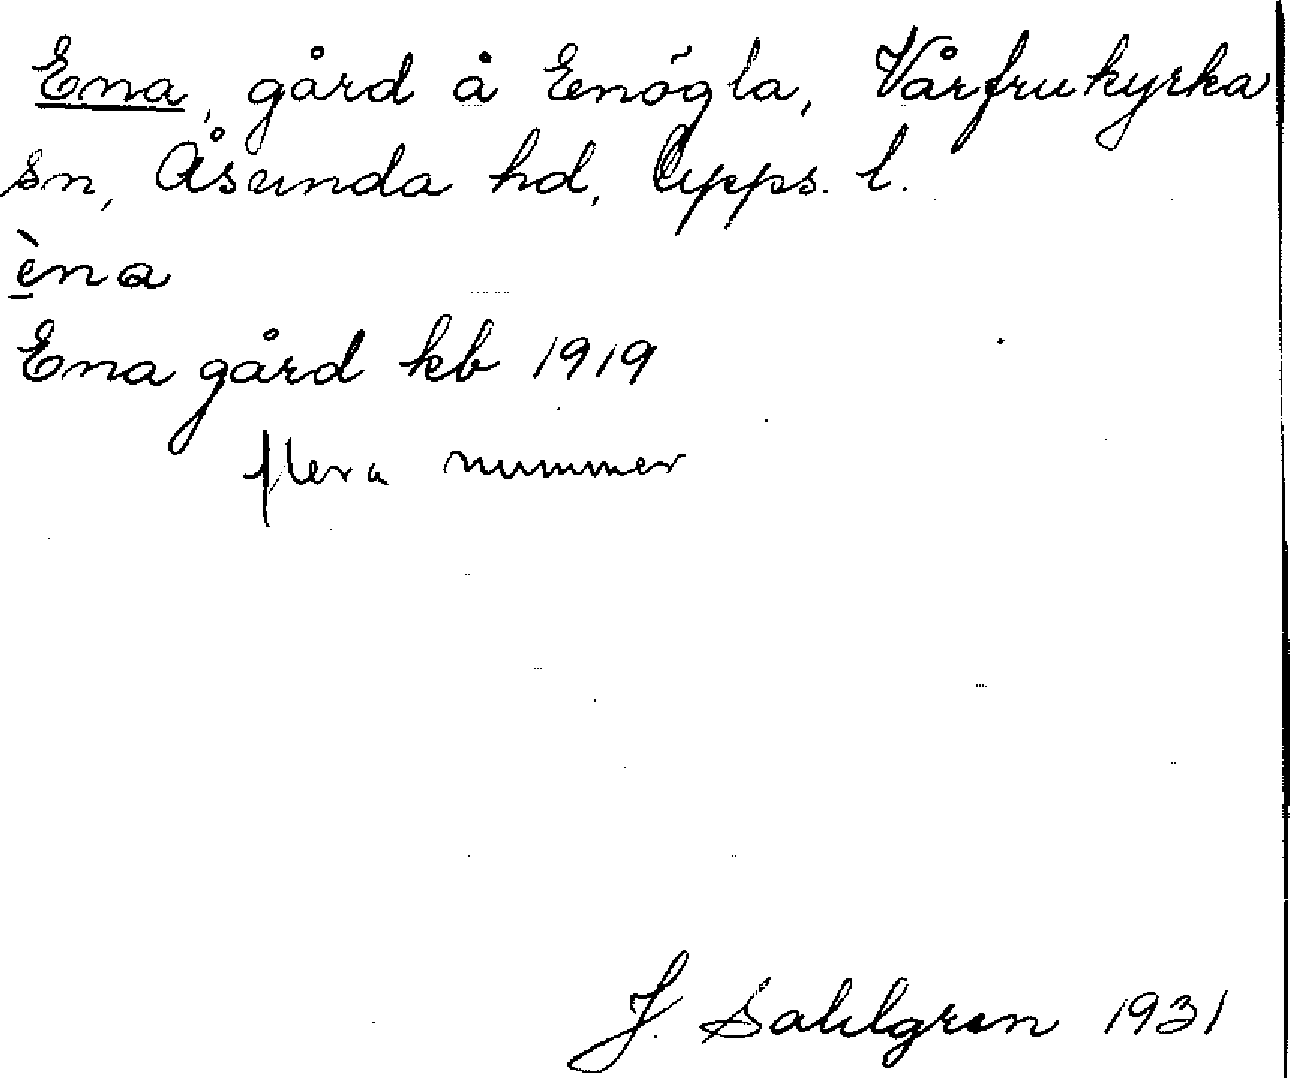 Ena, gård å Enögla, Vårfrukyrka
sn, Åsunda hd, Upps. l.
èna
Ena gård kb 1919
flera nummer
J. Sahlgren 1931